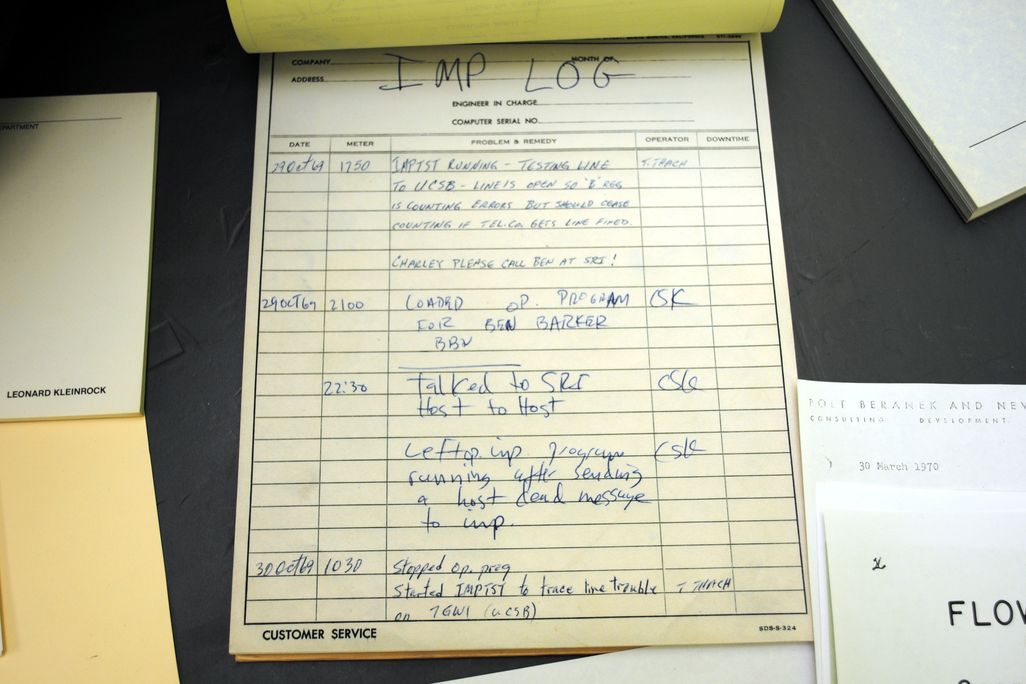 COMPANY MONTH OF
ADDRESS IMP LOG
ENGINEER IN CHARGE
COMPUTER SERIAL NO.
DATE METER PROBLEM & REMEDY OPERATOR DOWNTIME
29Oct69 1750 IMPTST RUNNING - TESTING LINE T. THACH
TO UCSB - LINE IS OPEN SO 'B' REG
IS COUNTING ERRORS BUT SHOULD CEASE
COUNTING IF TEL.CO. GETS LINE FIXED.
CHARLEY PLEASE CALL BEN AT SRI!
29OCT69 2100 LOADED OP. PROGRAM CSK
FOR BEN BARKER
BBN
22:30 Talked to SRI CSK
Host to Host
Left op. imp. program CSK
running after sending
a host dead message
to imp.
30Oct69 1030 Stopped op. prog
Started IMPTST to trace line trouble T. THACH
on 7GW1 (UCSB)
CUSTOMER SERVICE SDS-S-324
LEONARD KLEINROCK
BOLT BERANEK AND NEW
CONSULTING DEVELOPMENT
30 March 1970
FLOW